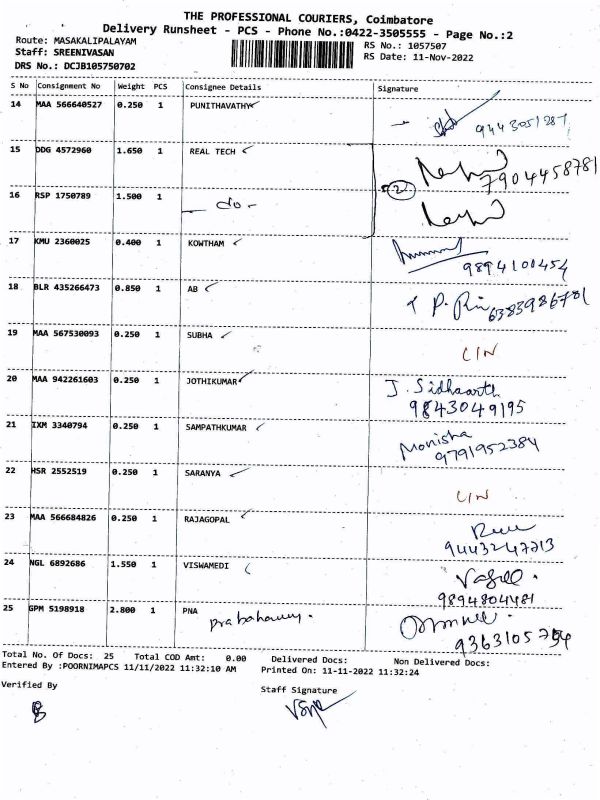 THE PROFESSIONAL COURIERS, Coimbatore
Delivery Runsheet - PCS - Phone No.:0422-3505555 - Page No.:2
Route: MASAKALIPALAYAM
RS No.: 1057507
Staff: SREENIVASAN
RS Date: 11-Nov-2022
DRS No.: DCJB105750702
S No Consignment No Weight PCS Consignee Details Signature
14 MAA 566640527 0.250 1 PUNITHAVATHY 9443051287
15 DDG 4572960 1.650 1 REAL TECH 7904458781
16 RSP 1750789 1.500 1 - do - 2
17 KMU 2360025 0.400 1 KOWTHAM 9894100454
18 BLR 435266473 0.850 1 AB 6383986781
19 MAA 567530093 0.250 1 SUBHA L/N
20 MAA 942261603 0.250 1 JOTHIKUMAR J. Sidhaarth
9843049195
21 IXM 3340794 0.250 1 SAMPATHKUMAR Monisha
9791952384
22 HSR 2552519 0.250 1 SARANYA L/N
23 MAA 566684826 0.250 1 RAJAGOPAL
9443247213
24 NGL 6892686 1.550 1 VISWAMEDI
9894804481
25 GPM 5198918 2.800 1 PNA
9363105794
Total No. Of Docs: 25 Total COD Amt: 0.00 Delivered Docs: Non Delivered Docs:
Entered By :POORNIMAPCS 11/11/2022 11:32:10 AM Printed On: 11-11-2022 11:32:24
Verified By Staff Signature